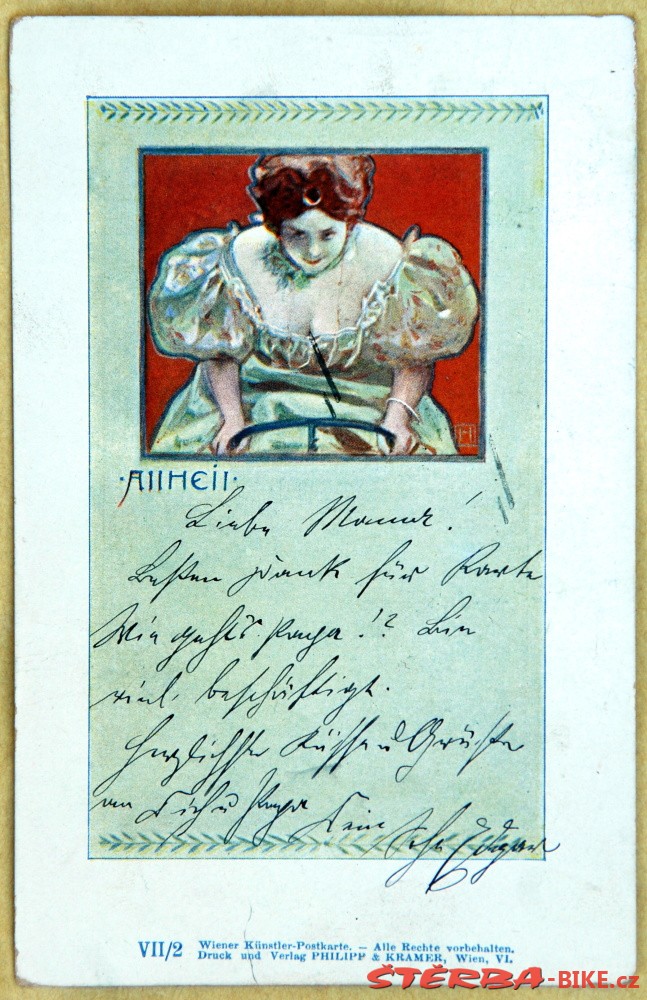 ·AllHEil·
Liebe Mama!
Besten Dank für Karte
Wie geht's Papa!? Bin
viel beschäftigt.
Herzlichste Küsse u Grüße
an Dich u Papa Dein Sohn Edgar
VII/2 Wiener Künstler-Postkarte. – Alle Rechte vorbehalten.
Druck und Verlag PHILIPP & KRAMER, Wien, VI.
ŠTĚRBA-BIKE.cz